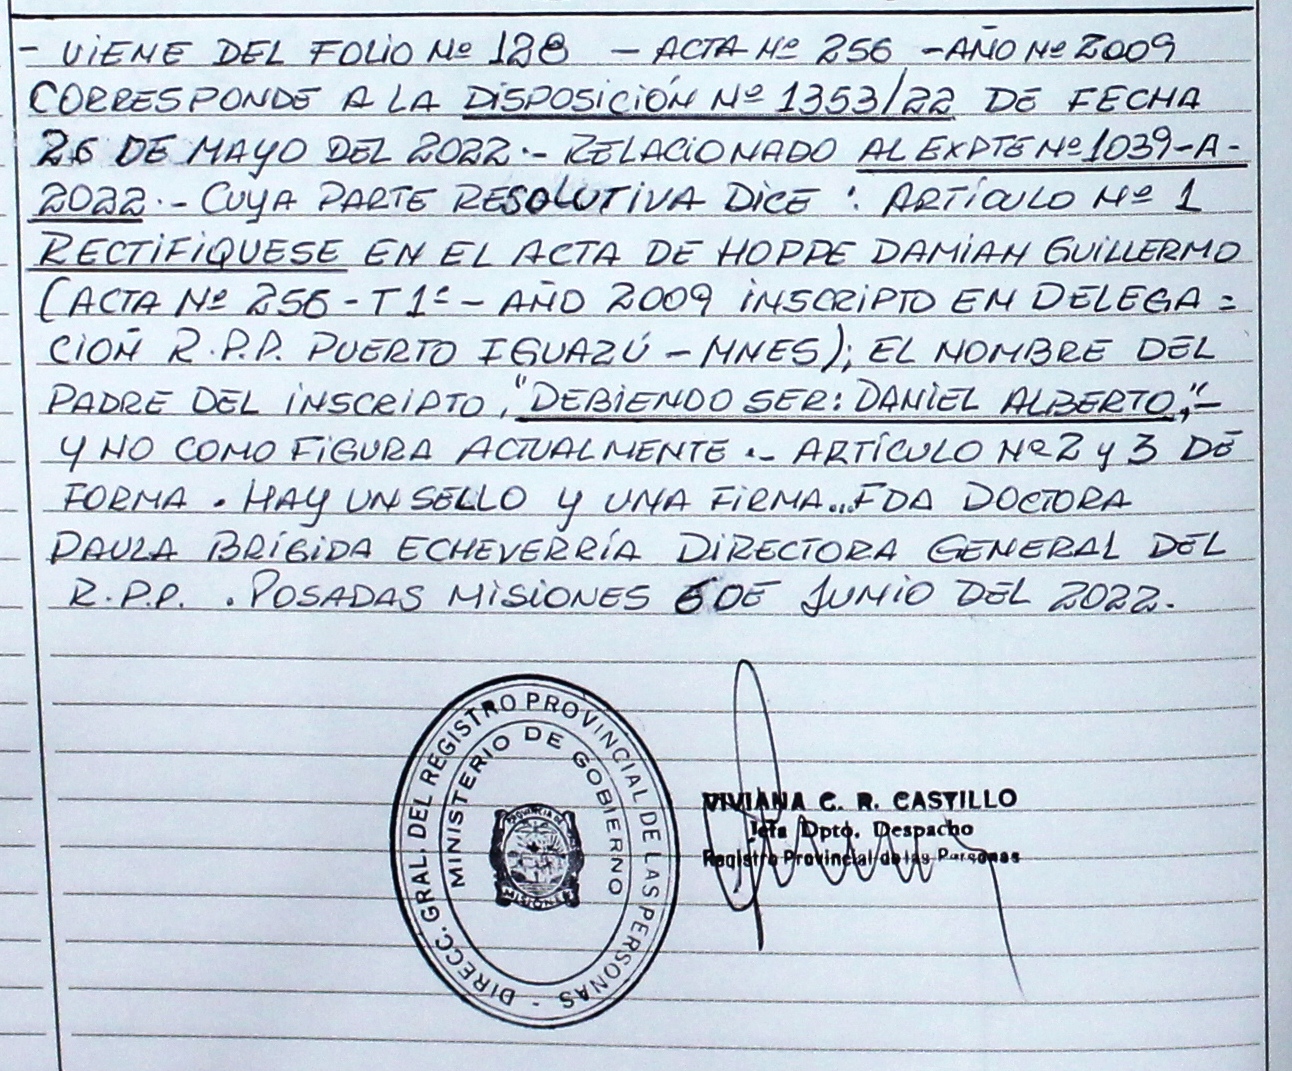 - VIENE DEL FOLIO Nº 128 - ACTA Nº 256 - AÑO Nº 2009
CORRESPONDE A LA DISPOSICIÓN Nº 1353/22 DE FECHA
26 DE MAYO DEL 2022.- RELACIONADO AL EXPTE Nº 1039-A-
2022.- CUYA PARTE RESOLUTIVA DICE : ARTÍCULO Nº 1
RECTIFIQUESE EN EL ACTA DE HOPPE DAMIAN GUILLERMO
(ACTA Nº 256 - T 1º - AÑO 2009 INSCRIPTO EN DELEGA =
CIOÑ R.P.P. PUERTO IGUAZÚ - MNES); EL NOMBRE DEL
PADRE DEL INSCRIPTO, "DEBIENDO SER: DANIEL ALBERTO,"-
Y NO COMO FIGURA ACTUALMENTE .- ARTÍCULO Nº 2 Y 3 DE
FORMA . HAY UN SELLO Y UNA FIRMA...FDA DOCTORA
PAULA BRÍGIDA ECHEVERRÍA DIRECTORA GENERAL DEL
R.P.P. . POSADAS MISIONES 6 DE JUNIO DEL 2022.
DIRECC. GRAL. DEL REGISTRO PROVINCIAL DE LAS PERSONAS -
MINISTERIO DE GOBIERNO
PROVINCIA DE
MISIONES
VIVIANA C. R. CASTILLO
Jefa Dpto. Despacho
Registro Provincial de las Personas